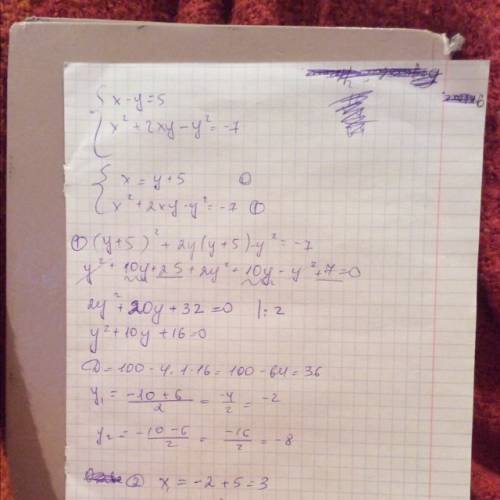 { x - y = 5
x² + 2xy - y² = -7
{ x = y + 5
x² + 2xy - y² = -7 ①
① (y+5)² + 2y(y+5) - y² = -7
y² + 10y + 25 + 2y² + 10y - y² + 7 = 0
2y² + 20y + 32 = 0 |: 2
y² + 10y + 16 = 0
D = 100 - 4 · 1 · 16 = 100 - 64 = 36
y₁ = (-10 + 6)/2 = -4/2 = -2
y₂ = (-10 - 6)/2 = -16/2 = -8
② x = -2 + 5 = 3